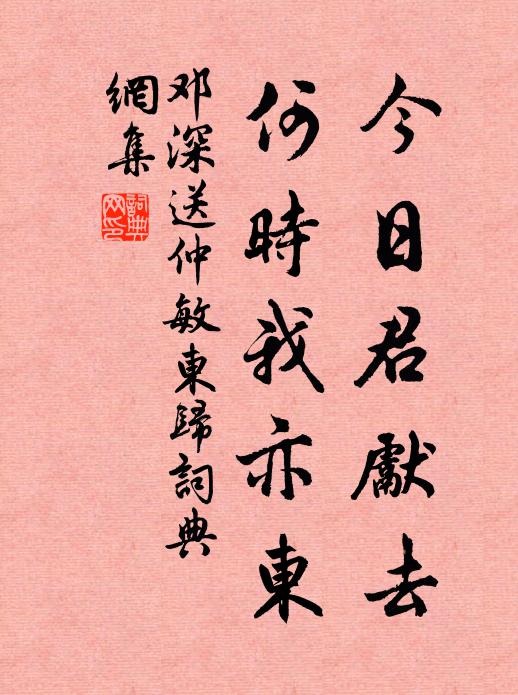 今日君獻去
何時我亦東
邓深送仲敏東歸詞典
網集
詞典
网印